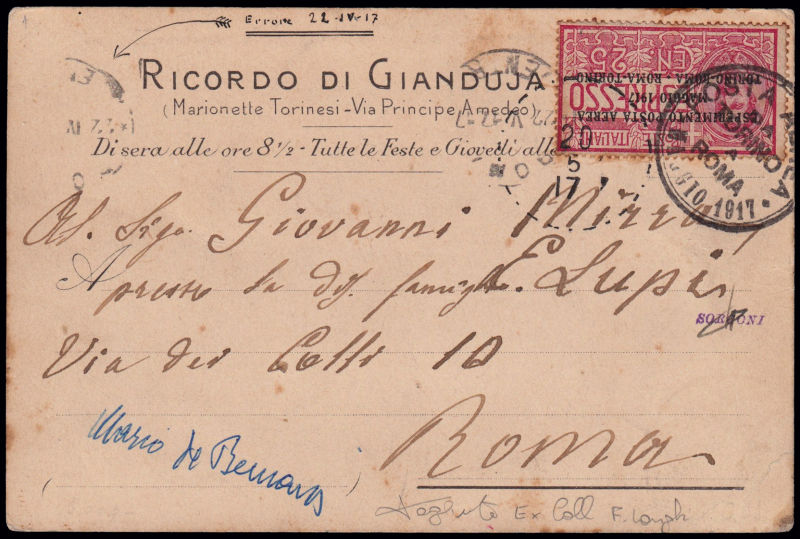 Errore 22-IV-17
RICORDO DI GIANDUJA
(Marionette Torinesi - Via Principe Amedeo)
Di sera alle ore 8½ - Tutte le Feste e Giovedì alle
CEN 25
ESPRESSO
ITALIANE
ESPERIMENTO POSTA AEREA
MAGGIO 1917
TORINO-ROMA · ROMA-TORINO
POSTA AEREA
TORINO
ROMA
MAGGIO 1917
20
5
17
Al Sigr. Giovanni
Presso la dist. famigl. E. Lupi
SORGONI
Via dei Colli 10
Roma
Mario de Bernardi
Ex Coll